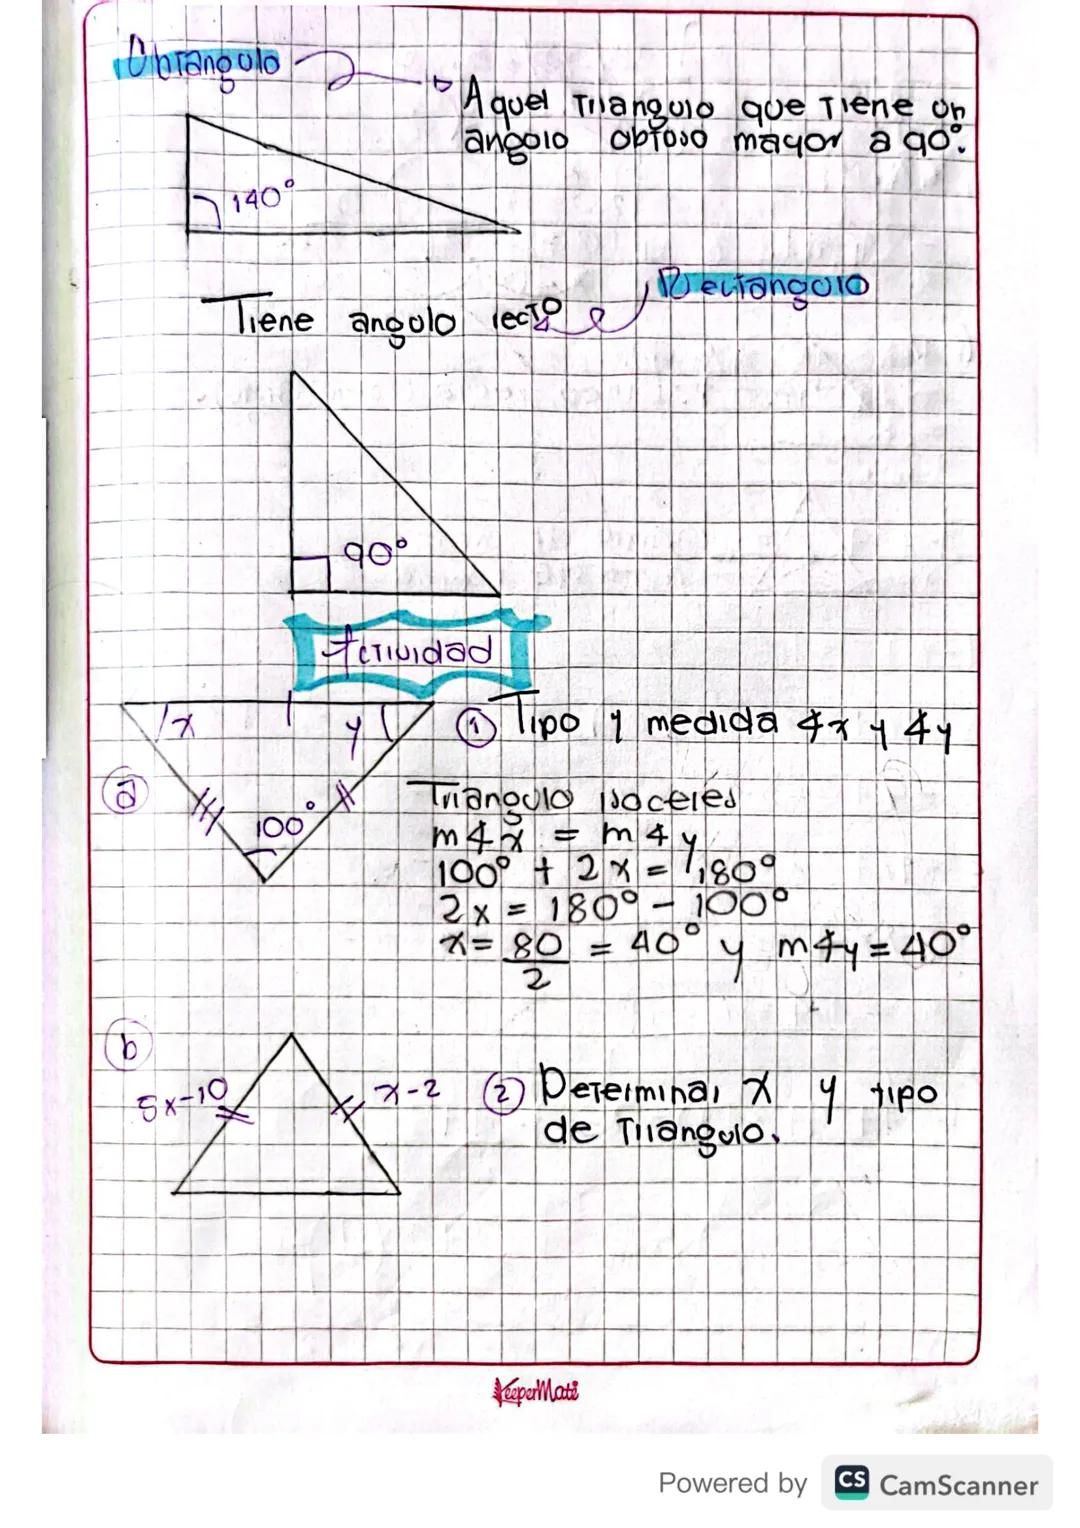 Obtangulo
Aquel Triangulo que Tiene un
angulo obtuso mayor a 90°.
140°
Rectangulo
Tiene angulo recto
90°
Actividad
x
y
① Tipo y medida ∡x y ∡y
a
100°
Triangulo isoceles
m∡x = m∡y
100° + 2x = 180°
2x = 180° - 100°
x = 80/2 = 40° y m∡y = 40°
b
5x-10
x-2
② Determinar x y tipo
de Triangulo.
KeeperMate
Powered by CS CamScanner